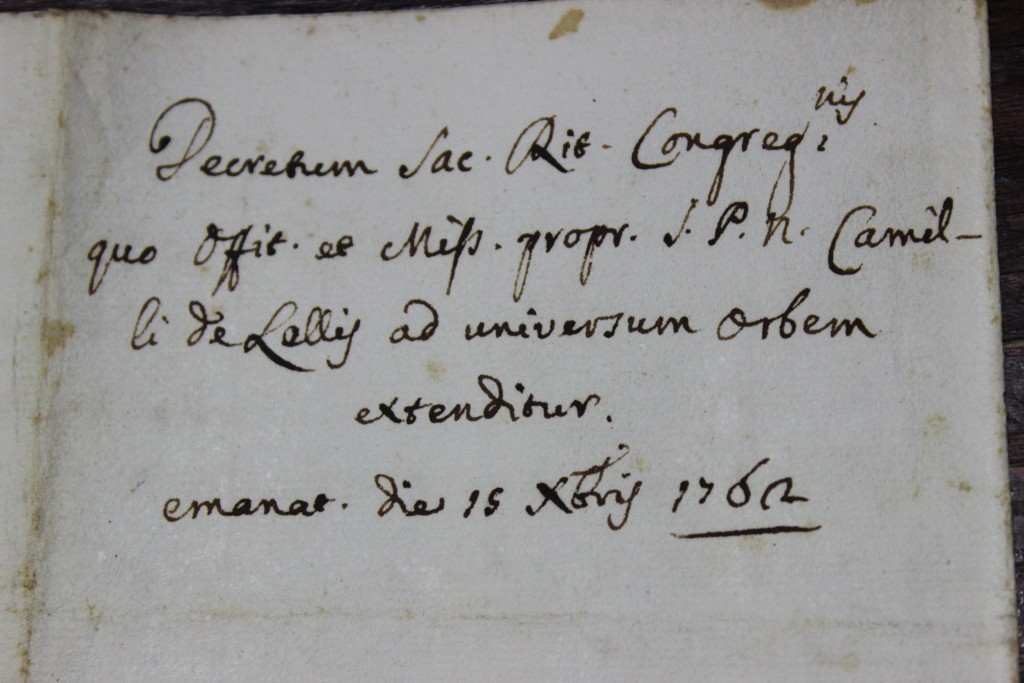 Decretum Sac. Rit. Congreg:nis
quo Offit. et Miss. propr. S. P. N. Camil-
li de Lellis ad universum Orbem
extenditur.
emanat. die 15 Xbris 1762